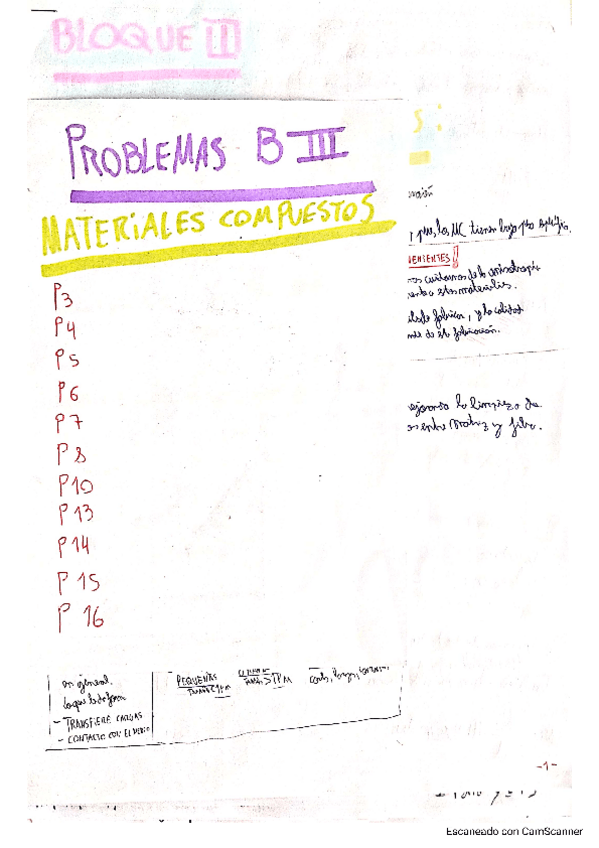 BLOQUE II
PROBLEMAS B III
MATERIALES COMPUESTOS
P3
P4
P5
P6
P7
P8
P10
P13
P14
P15
P16
S:
pes, los MC tienen bajo peso
VENIENTES!
estos materiales.
fabricar, y la calidad
de fabricación.
la limpieza de
entre matriz y fibra.
en general.
- TRANSFIERE CARGAS
- CONTACTO CON EL MEDIO
PEQUEÑAS
-1-
Escaneado con CamScanner